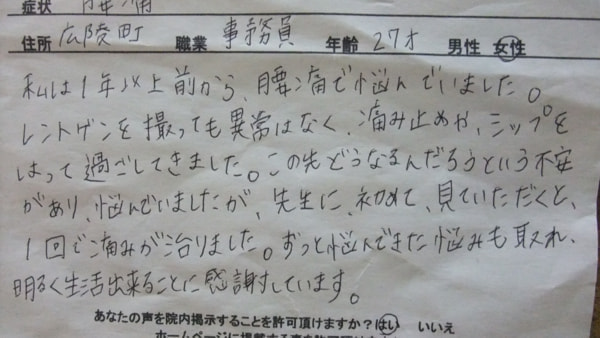 症状 腰痛
住所 広陵町 職業 事務員 年齢 27才 男性 女性
私は1年以上前から、腰痛で悩んでいました。
レントゲンを撮っても異常はなく、痛み止めや、シップを
はって過ごしてきました。この先どうなるんだろうという不安
があり、悩んでいましたが、先生に、初めて、見ていただくと、
1回で痛みが治りました。ずっと悩んできた悩みも取れ、
明るく生活出来ることに感謝しています。
あなたの声を院内掲示することを許可頂けますか?はい いいえ
ホームページに掲載する事を許可頂けますか